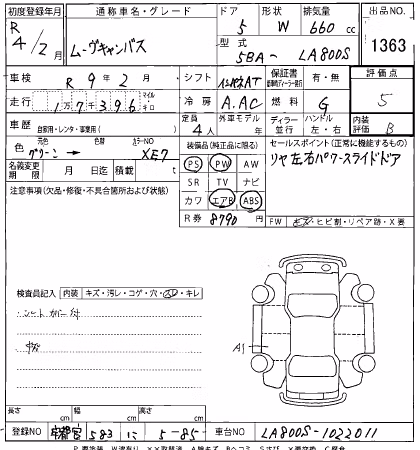 初度登録年月 通称車名・グレード ドア 形状 排気量 出品NO.
R 4/2月 ムーヴキャンバス 5 W 660cc 1363
型式 5BA- LA800S
車検 R 9年 2月 シフト インパネAT 保証書 有・無 評価点
走行 1 7 3 9 6 マイル キロ 冷房 A.AC 燃料 G 5
車歴 自家用・レンタ・事業用( ) 定員 4人 外車モデル 年 ディーラー 並行 ハンドル 左・右 内装評価 B
色 元色 グリーン 色替 カラーNO XE7 装備品(純正品に限る) セールスポイント(正常に機能するもの)
PS PW AW リヤ左右パワースライドドア
名義変更期限 月 日 積載 t SR TV ナビ
注意事項(欠品・修復・不具合箇所および状態) カワ エアB ABS
R券 8790円 FW キズ・ヒビ割・リペア跡・X要
検査員記入 内装 キズ・汚レ・コゲ・穴・スレ・キレ
シートカバー付
A1
長さ cm 幅 cm 高さ cm
登録NO 宇都宮 583 に 5-85 車台NO LA800S-1022011